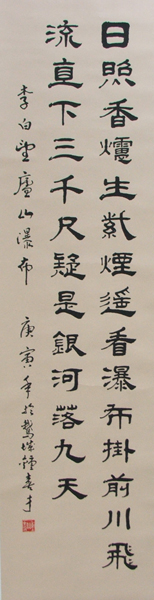 日照香爐生紫煙遙看瀑布掛前川飛
流直下三千尺疑是銀河落九天
李白望廬山瀑布 庚寅年於